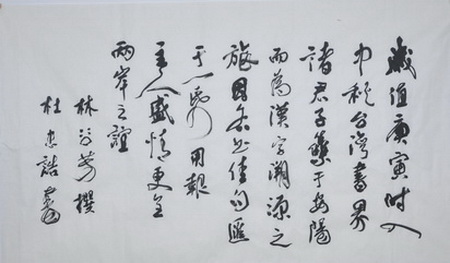 歲值庚寅時入
中秋台灣書界
諸君子集于安陽
而為漢字溯源之
旅因各出佳句匯
于一用報
主人盛情更全
兩岸之誼
林谷芳撰
杜忠誥書